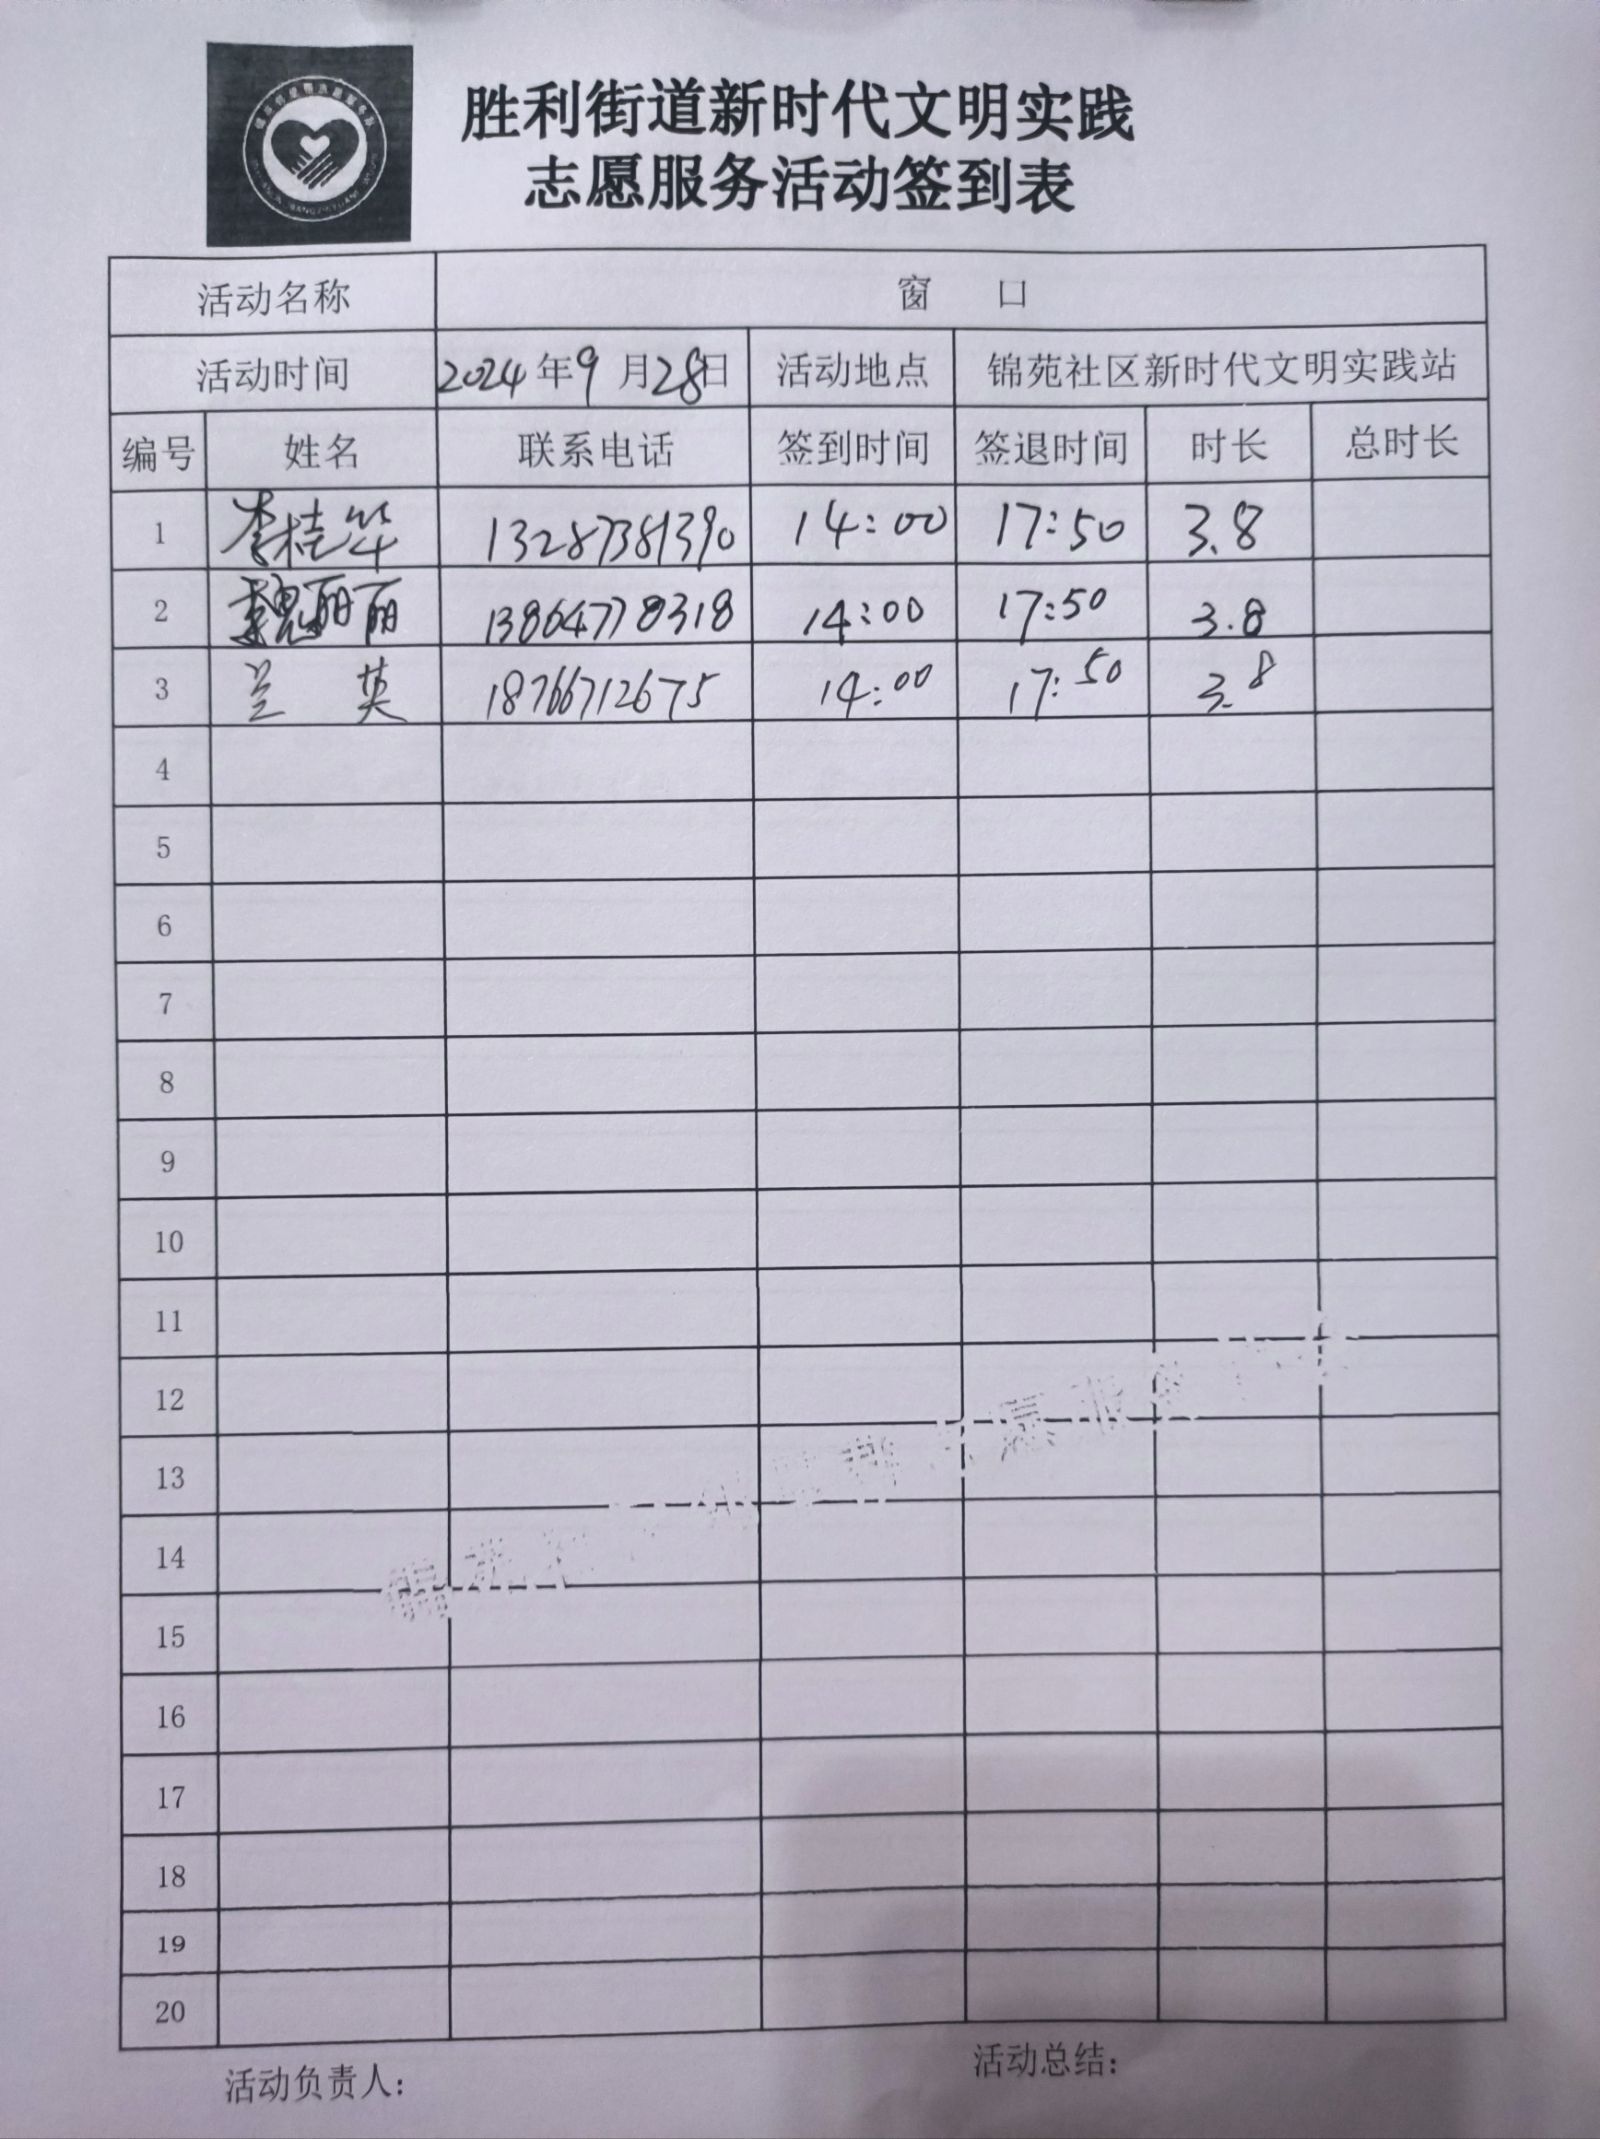 胜利街道新时代文明实践
志愿服务活动签到表
活动名称 窗 口
活动时间 2024年9月28日 活动地点 锦苑社区新时代文明实践站
编号 姓名 联系电话 签到时间 签退时间 时长 总时长
1 李桂华 13287381390 14:00 17:50 3.8
2 魏丽丽 13864778318 14:00 17:50 3.8
3 兰英 18766712675 14:00 17:50 3.8
4
5
6
7
8
9
10
11
12
13
14
15
16
17
18
19
20
活动负责人: 活动总结: